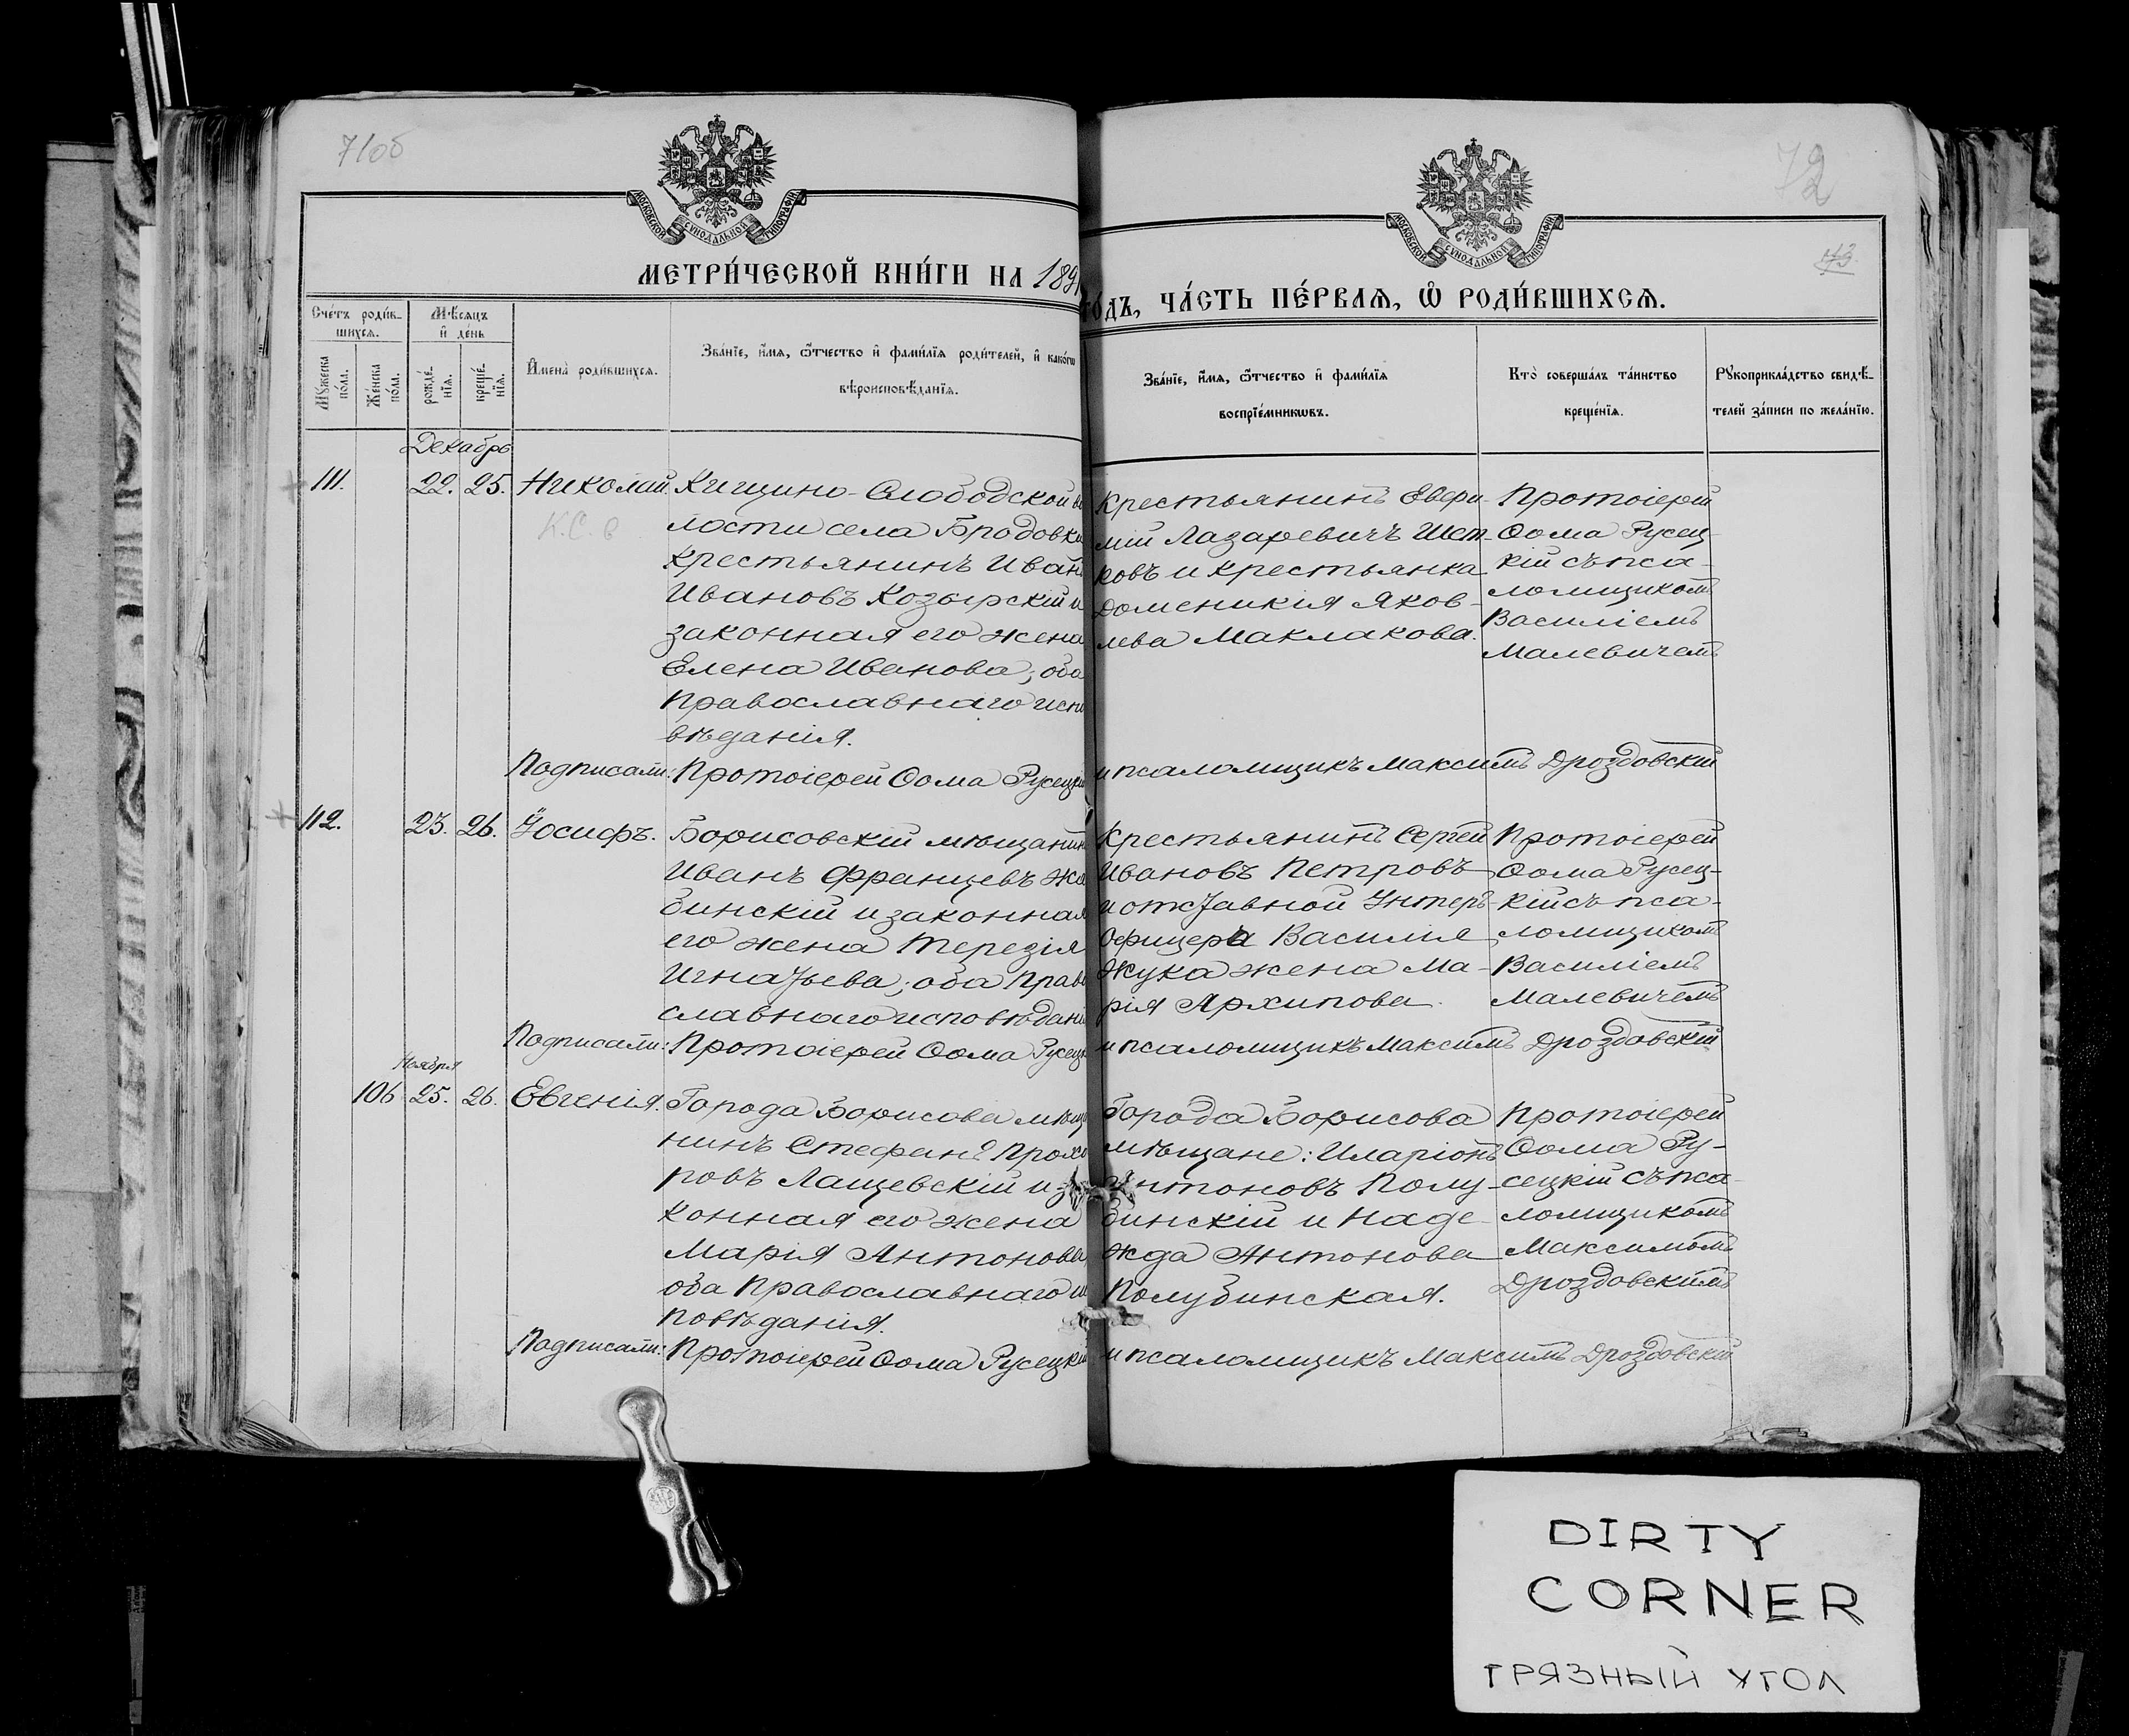 71об
72
73.
МОСКОВСКОЙ СУНОДАЛЬНОЙ ТИПОГРАФИИ
МОСКОВСКОЙ СУНОДАЛЬНОЙ ТИПОГРАФИИ
МЕТРИ́ЧЕСКОЙ КНИ́ГИ НА 189
ГО́ДЪ, ЧА́СТЬ ПЕ́РВАѦ, Ѡ РОДИ́ВШИХСѦ.
Сче́тъ роди́в-
шихсѧ.
Мѣ́сѧцъ
и де́нь
Мꙋ́жеска по́ла.
Же́нска по́ла.
рожде́-
нїѧ.
креще́-
нїѧ.
Имена̀ роди́вшихсѧ.
Зва́нїе, и́мѧ, ѻ́тчество и фами́лїѧ роди́телей, и како́гѡ
вѣроисповѣ́данїѧ.
Зва́нїе, и́мѧ, ѻ́тчество и фами́лїѧ
воспрїе́мникѡвъ.
Кто̀ соверша́лъ та́инство
креще́нїѧ.
Рꙋкоприкла́дство свидѣ́-
телей за́писи по жела́нїю.
Декабрь
111. 22. 25. Николай.
К.С. в
Кищино-Слободской во
лости села Бродовки
крестьянинъ Иванъ
Ивановъ Козырскій и
законная его жена
Елена Иванова; оба
православнаго испо
вѣданія.
Крестьянинъ Евфи-
мій Лазаревичъ Шет-
ковъ и крестьянка
Доменикія Яков-
лева Маклакова.
Протоіерей
Ѳома Русец-
кій съ пса-
ломщикомъ
Василіемъ
Малевичемъ
Подписали: Протоіерей Ѳома Русецкій и псаломщикъ Максимъ Дроздовскій
112. 23. 26. Іосифъ.
Борисовскій мѣщанинъ
Иванъ Францевъ Жа
бинскій и законная
его жена Терезія
Игнатьева; оба право
славнаго исповѣданія
Крестьянинъ Сергей
Ивановъ Петровъ
и отставной Унтеръ-
Офицера Василія
Жука жена Ма-
рія Архипова.
Протоіерей
Ѳома Русец-
кій съ пса-
ломщикомъ
Василіемъ
Малевичемъ
Подписали: Протоіерей Ѳома Русецк и псаломщикъ Максимъ Дроздовскій
Ноября
106 25. 26. Евгенія.
Города Борисова мѣща
нинъ Стефанъ Прохо
ровъ Лащевскій и за
конная его жена
Марія Антонова
оба православнаго ис
повѣданія.
Города Борисова
мѣщане: Иларіонъ
Антоновъ Полу-
бинскій и Наде-
жда Антонова
Полубинская.
Протоіерей
Ѳома Ру-
сецкій съ пса-
ломщикомъ
Максимомъ
Дроздовскимъ
Подписали: Протоіерей Ѳома Русецкій и псаломщикъ Максимъ Дроздовскій
DIRTY
CORNER
ГРЯЗНЫЙ УГОЛ